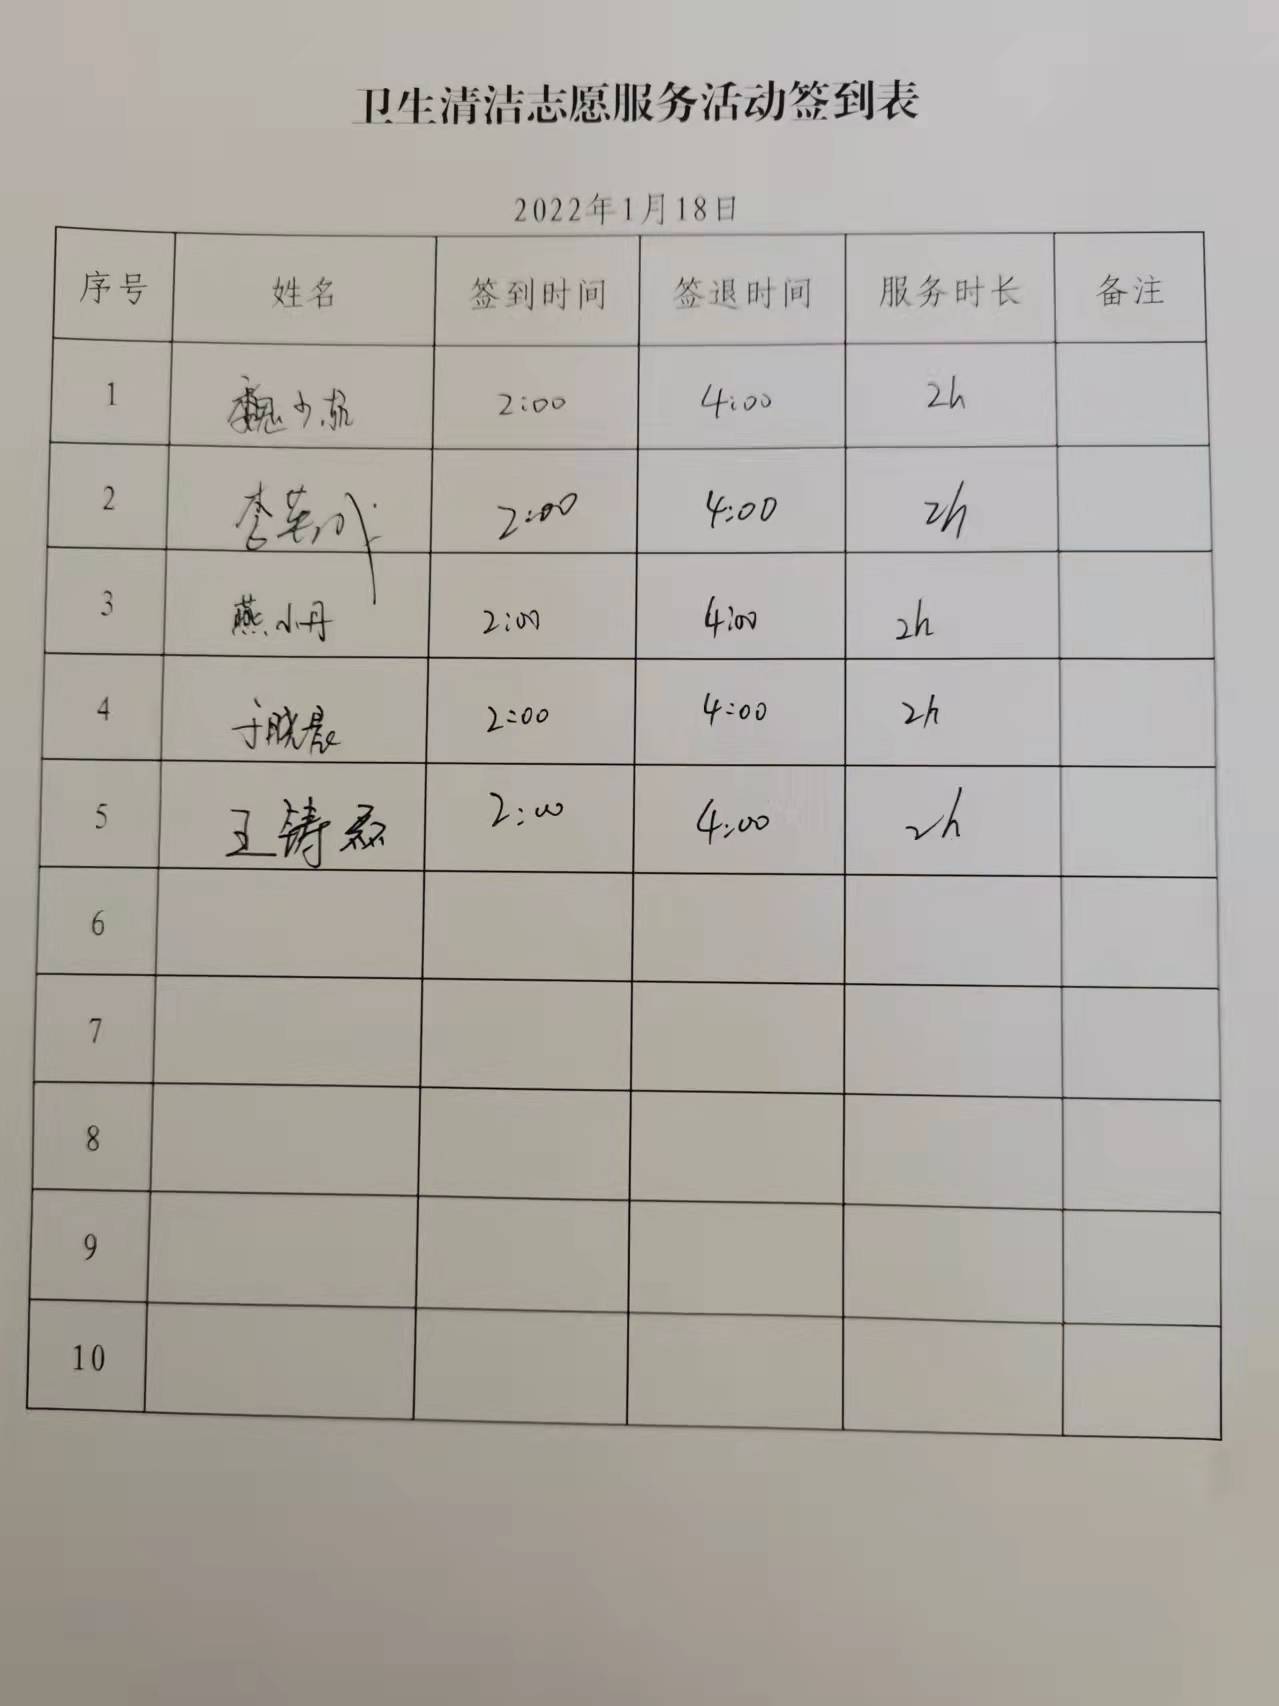 卫生清洁志愿服务活动签到表
2022年1月18日
序号 姓名 签到时间 签退时间 服务时长 备注
1 魏少 2:00 4:00 2h
2 李英 2:00 4:00 2h
3 燕小丹 2:00 4:00 2h
4 于晓晨 2:00 4:00 2h
5 王铸磊 2:00 4:00 2h
6
7
8
9
10